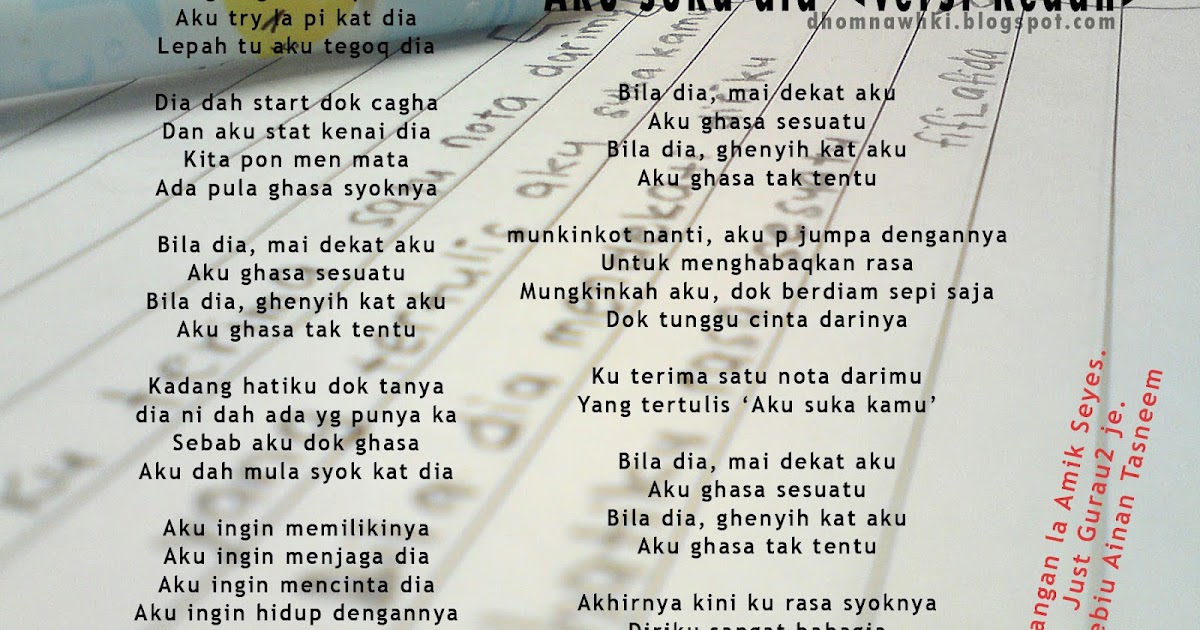 Aku try la pi kat dia
Lepah tu aku tegoq dia
Dia dah start dok cagha
Dan aku stat kenai dia
Kita pon men mata
Ada pula ghasa syoknya
Bila dia, mai dekat aku
Aku ghasa sesuatu
Bila dia, ghenyih kat aku
Aku ghasa tak tentu
Kadang hatiku dok tanya
dia ni dah ada yg punya ka
Sebab aku dok ghasa
Aku dah mula syok kat dia
Aku ingin memilikinya
Aku ingin menjaga dia
Aku ingin mencinta dia
Aku ingin hidup dengannya
Aku suka dia <versi kedah>
dhomnawhki.blogspot.com
Bila dia, mai dekat aku
Aku ghasa sesuatu
Bila dia, ghenyih kat aku
Aku ghasa tak tentu
munkinkot nanti, aku p jumpa dengannya
Untuk menghabaqkan rasa
Mungkinkah aku, dok berdiam sepi saja
Dok tunggu cinta darinya
Ku terima satu nota darimu
Yang tertulis ‘Aku suka kamu’
Bila dia, mai dekat aku
Aku ghasa sesuatu
Bila dia, ghenyih kat aku
Aku ghasa tak tentu
Akhirnya kini ku rasa syoknya
Diriku sangat bahagia
la Amik Seyes.
Just Gurau2 je.
Ainan Tasneem
Ku terima satu nota darimu
tertulis aku suka kamu
dia mendekati diriku
rasa sesuatu